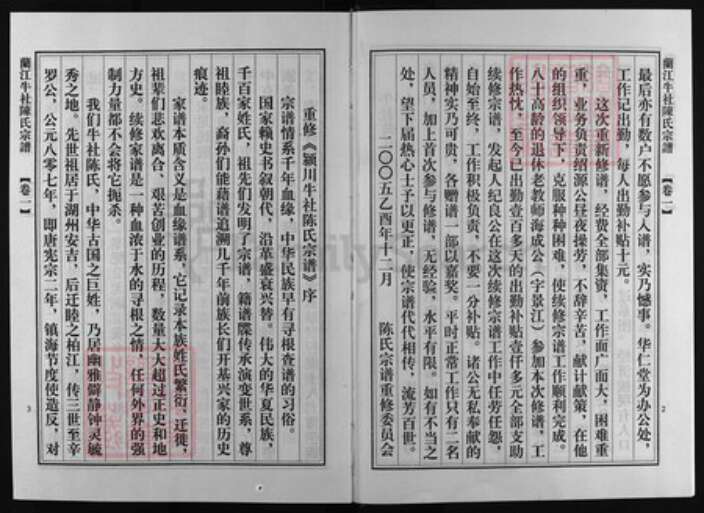 蘭江牛社陳氏宗譜
【卷一】
2
最后亦有数户不愿参与入谱，实乃憾事。华仁堂为办公处，
工作记出勤，每人出勤补贴十元。
这次重新修谱，经费全部集资，工作面广面大，困难重
重，业务负责绍源公昼夜操劳，不辞辛苦，献计献策，在他
的组织领导下，克服种种困难，使续修宗谱工作顺利完成。
八十高龄的退休老教师海成公（字景江）参加本次修谱，工
作热忱，至今已出勤壹百多天的出勤补贴壹仟多元全部支助
续修宗谱，发起人纪良公在这次续修宗谱工作中任劳任怨，
自始至终，工作积极负责，不要一分补贴。诸公无私奉献的
精神实乃可贵，各赠谱一部以嘉奖。平时正常工作只有二名
人员，加上首次参与修谱，无经验，水平有限。如有不当之
处，望下届热心士子以更正，使宗谱代代相传，流芳百世。
二〇〇五乙酉年十二月 陈氏宗谱重修委员会
重修《颍川牛社陈氏宗谱》序
宗谱情系千年血缘，中华民族早有寻根查谱的习俗。
国家赖史书叙朝代，沿革盛衰兴替。伟大的华夏民族，
千百家姓氏，祖先们发明了宗谱，籍谱牒传承演变世系，尊
祖睦族，裔孙们能藉谱追溯几千年前族长们开基兴家的历史
痕迹。
家谱本质含义是血缘谱系，它记录本族姓氏繁衍、迁徙，
祖辈们悲欢离合、艰苦创业的历程，数量大大超过正史和地
方史。续修家谱是一种血浓于水的寻根之情，任何外界的强
制力量都不会将它扼杀。
我们牛社陈氏，中华古国之巨姓，乃居幽雅僻静钟灵毓
秀之地。先世祖居于湖州安吉，后迁睦之柏江，传三世至辛
罗公，公元八零七年，即唐宪宗二年，镇海节度使造反，对
蘭江牛社陳氏宗譜
【卷一】
3